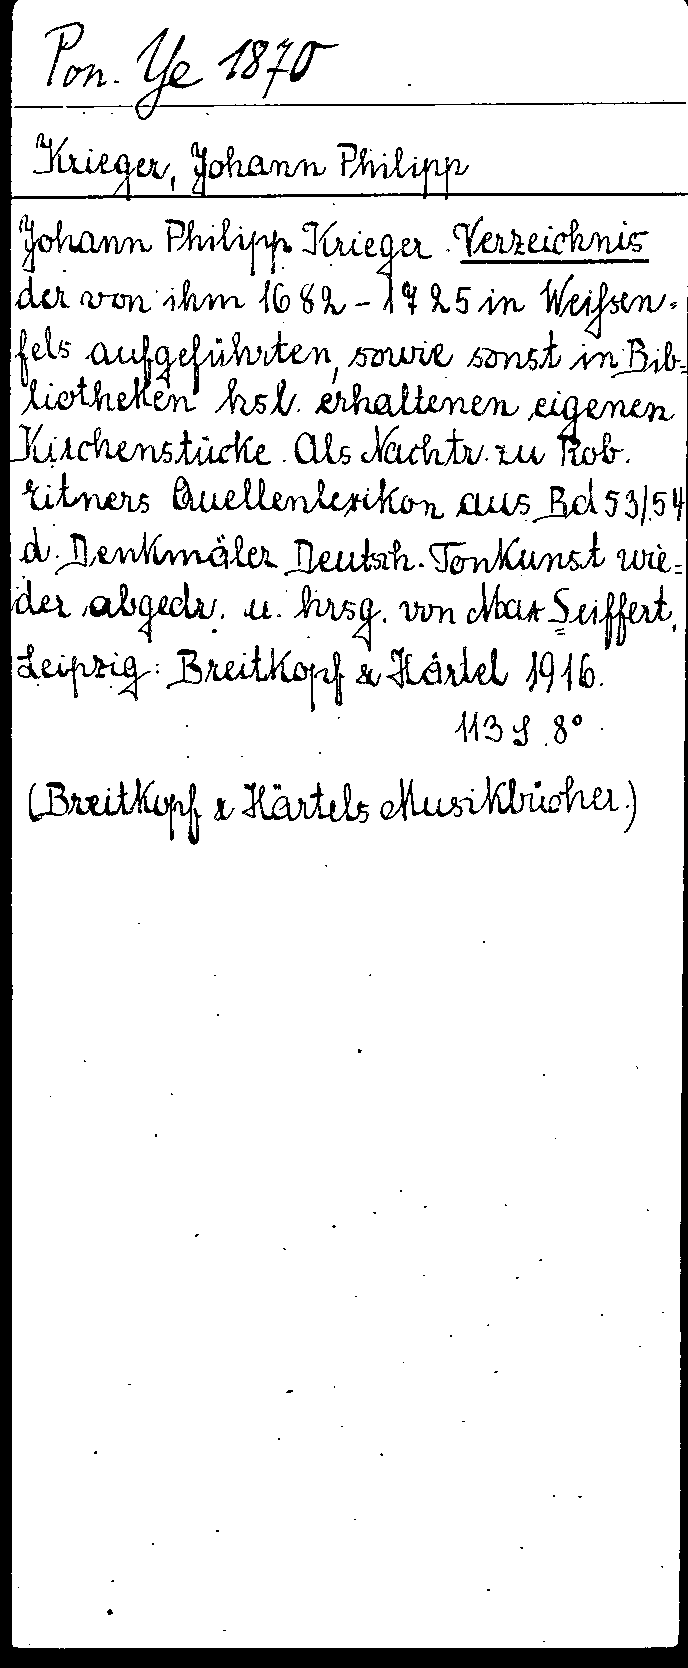 Pon. Ye 1870
Krieger, Johann Philipp
Johann Philipp Krieger. Verzeichnis
der von ihm 1682-1725 in Weißen-
fels aufgeführten, sowie sonst in Bib-
liotheken hsl. erhaltenen eigenen
Kirchenstücke. Als Nachtr. zu Rob.
Eitners Quellenlexikon aus Bd 53/54
d. Denkmäler Deutsch. Tonkunst wie-
der abgedr. u. hrsg. von Max Seiffert.
Leipzig: Breitkopf & Härtel 1916.
113 S. 8°
(Breitkopf & Härtels Musikbücher.)